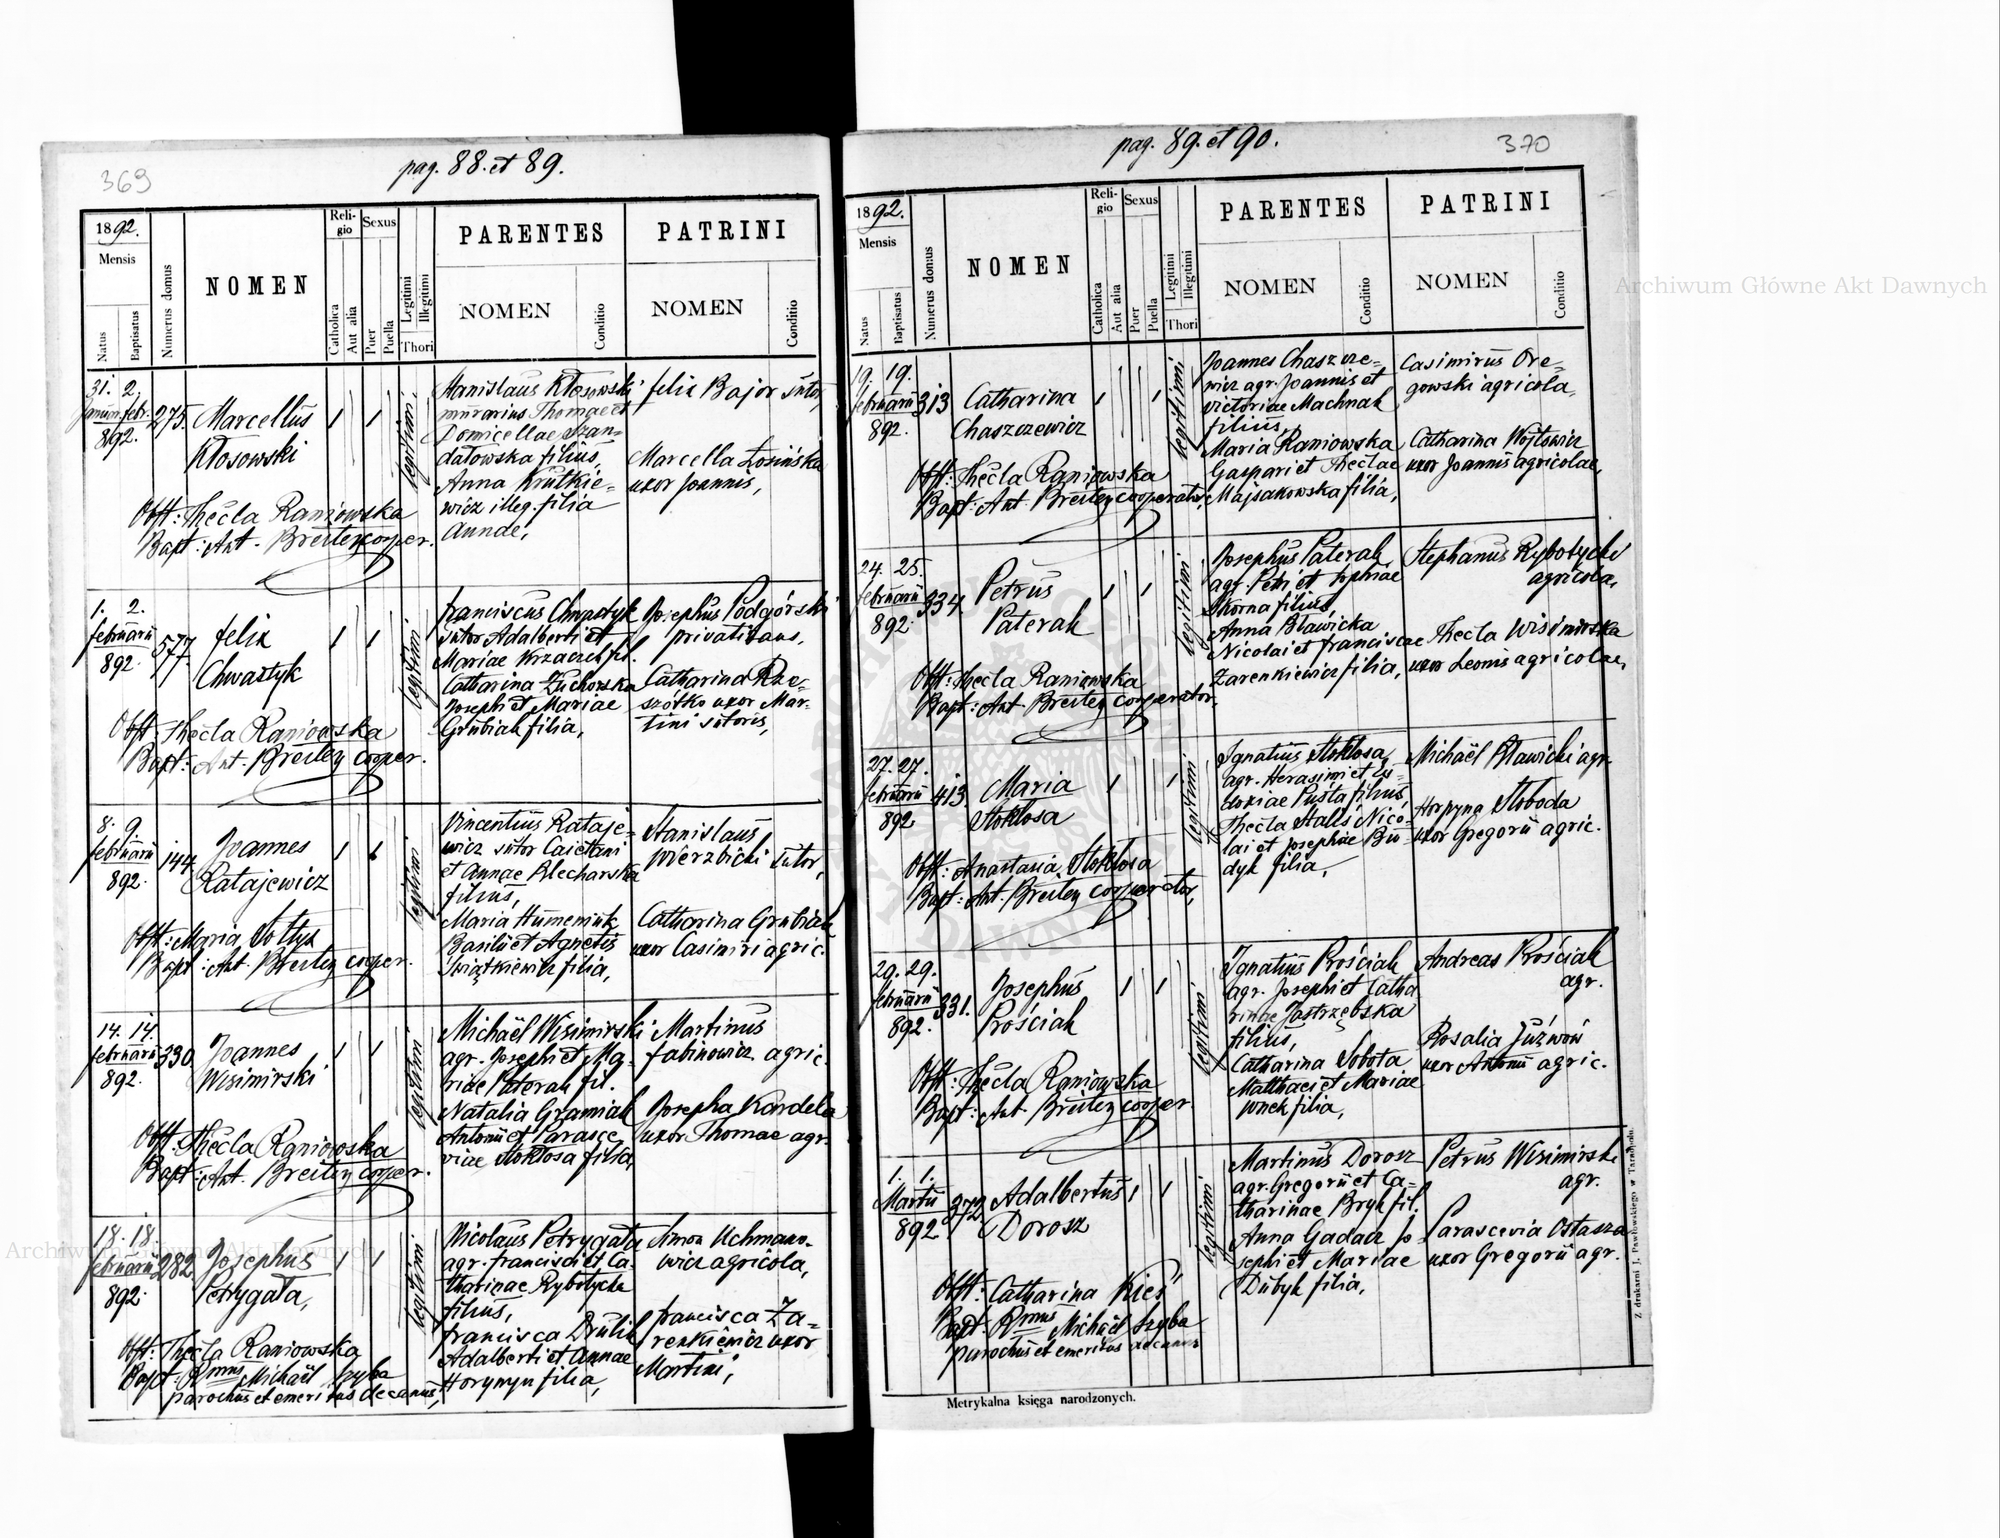 369
pag. 88. et 89.
1892.
Mensis
Natus
Baptisatus
Numerus domus
NOMEN
Religio
Catholica
Aut alia
Sexus
Puer
Puella
Legitimi
Illegitimi
Thori
PARENTES
NOMEN
Conditio
PATRINI
NOMEN
Conditio
31. 2.
Januar. febr.
892.
275.
Marcellus
Kłosowski
1
1
legitimi
Stanislaus Kłosowski
murarius Thomae et
Domicellae Szan-
datowska filius,
Anna Krutkie-
wicz illeg. filia
Annae,
felix Bajor sutor,
Marcella Łosińska
uxor Joannis,
Obst: Thecla Raniowska
Bapt: Ant. Breitey cooper.
1. 2.
februarii
892.
577
felix
Chwastyk
1
1
legitimi
franciscus Chwastyk
sutor Adalberti et
Mariae Krzaczek fil.
Catharina Zuchorska
Josephi et Mariae
Grubiak filia,
Josephus Podgórski
privatisans,
Catharina Rze-
szótko uxor Mar-
tini sutoris,
Obst: Thecla Raniowska
Bapt: Ant. Breitey cooper.
8. 9.
februarii
892.
144.
Joannes
Ratajewicz
1
1
legitimi
Vincentius Rataje-
wicz sutor Caietani
et Annae Blecharska
filius,
Maria Humeniuk
Basilii et Agnetis
Swiątkiewicz filia,
Stanislaus
Wierzbicki sutor,
Catharina Grubiak
uxor Casimiri agric.
Obst: Maria Sołtys
Bapt: Ant. Breitey cooper.
14. 14.
februarii
892.
330
Joannes
Wisimirski
1
1
legitimi
Michaël Wisimirski
agr. Josephi et Ma-
riae Paterak fil.
Natalia Gramiak
Antonii et Parasce-
viae Stokłosa filia,
Martinus
fabinowicz agric.
Josepha Kardela
uxor Thomae agr.
Obst: Thecla Raniowska
Bapt: Ant. Breitey cooper.
18. 18.
februarii
892.
282
Josephus
Petrygata,
1
1
legitimi
Nicolaus Petrygata
agr. francisci et Ca-
tharinae Rybotycka
filius,
francisca Drulik
Adalberti et Annae
Horynyn filia,
Simon Uchmano-
wicz agricola,
francisca Za-
renkiewicz uxor
Martini,
Obst: Thecla Raniowska
Bapt: Rmus Michaël Szyba
parochus et emeritus decanus,
pag. 89. et 90.
370
1892.
Mensis
Natus
Baptisatus
Numerus domus
NOMEN
Religio
Catholica
Aut alia
Sexus
Puer
Puella
Legitimi
Illegitimi
Thori
PARENTES
NOMEN
Conditio
PATRINI
NOMEN
Conditio
19. 19.
februarii
892.
313
Catharina
Chaszczewicz
1
1
legitimi
Joannes Chaszcze-
wicz agr. Joannis et
victoriae Machnak
filius,
Maria Raniowska
Gaspari et Theclae
Majsakowska filia,
Casimirus Ore-
gowski agricola,
Catharina Wojtowicz
uxor Joannis agricolae,
Obst: Thecla Raniowska
Bapt: Ant. Breitey cooperator,
24. 25.
februarii
892.
334.
Petrus
Paterak
1
1
legitimi
Josephus Paterak
agr. Petri et Sophiae
Skorna filius,
Anna Bławicka
Nicolai et franciscae
Zarenkiewicz filia,
Stephanus Rybotycki
agricola,
Thecla Wisimirska
uxor Leonis agricolae,
Obst: Thecla Raniowska
Bapt: Ant. Breitey cooperator,
27. 27.
februarii
892.
413
Maria
Stokłosa
1
1
legitimi
Ignatius Stokłosa,
agr. Herasimi et Eu-
doxiae Pusta filius,
Thecla Stalls Nico-
lai et Josephae Bu-
dyk filia,
Michaël Bławicki agr.
Horpyna Słoboda
uxor Gregorii agric.
Obst: Anastasia Stokłosa
Bapt: Ant. Breitey cooperator,
29. 29.
februarii
892.
331.
Josephus
Prościak
1
1
legitimi
Ignatius Prościak
agr. Josephi et Catha-
rinae Jastrzębska
filius,
Catharina Sobota
Matthaei et Mariae
Wnek filia,
Andreas Prościak
agr.
Rosalia Juźwów
uxor Antonii agric.
Obst: Thecla Raniowska
Bapt: Ant. Breitey cooper.
1. 1.
Martii
892
372
Adalbertus
Dorosz
1
1
legitimi
Martinus Dorosz
agr. Gregorii et Ca-
tharinae Bryk fil.
Anna Gadacz Jo-
sephi et Mariae
Dubyk filia,
Petrus Wisimirski
agr.
Parascevia Ostasza
uxor Gregorii agr.
Obst: Catharina Kieś
Bapt: Rmus Michaël Szyba
parochus et emeritus decanus
Metrykalna księga narodzonych.
Z drukarni J. Pawłowskiego w Tarnopolu.
Archiwum Główne Akt Dawnych
Archiwum Główne Akt Dawnych